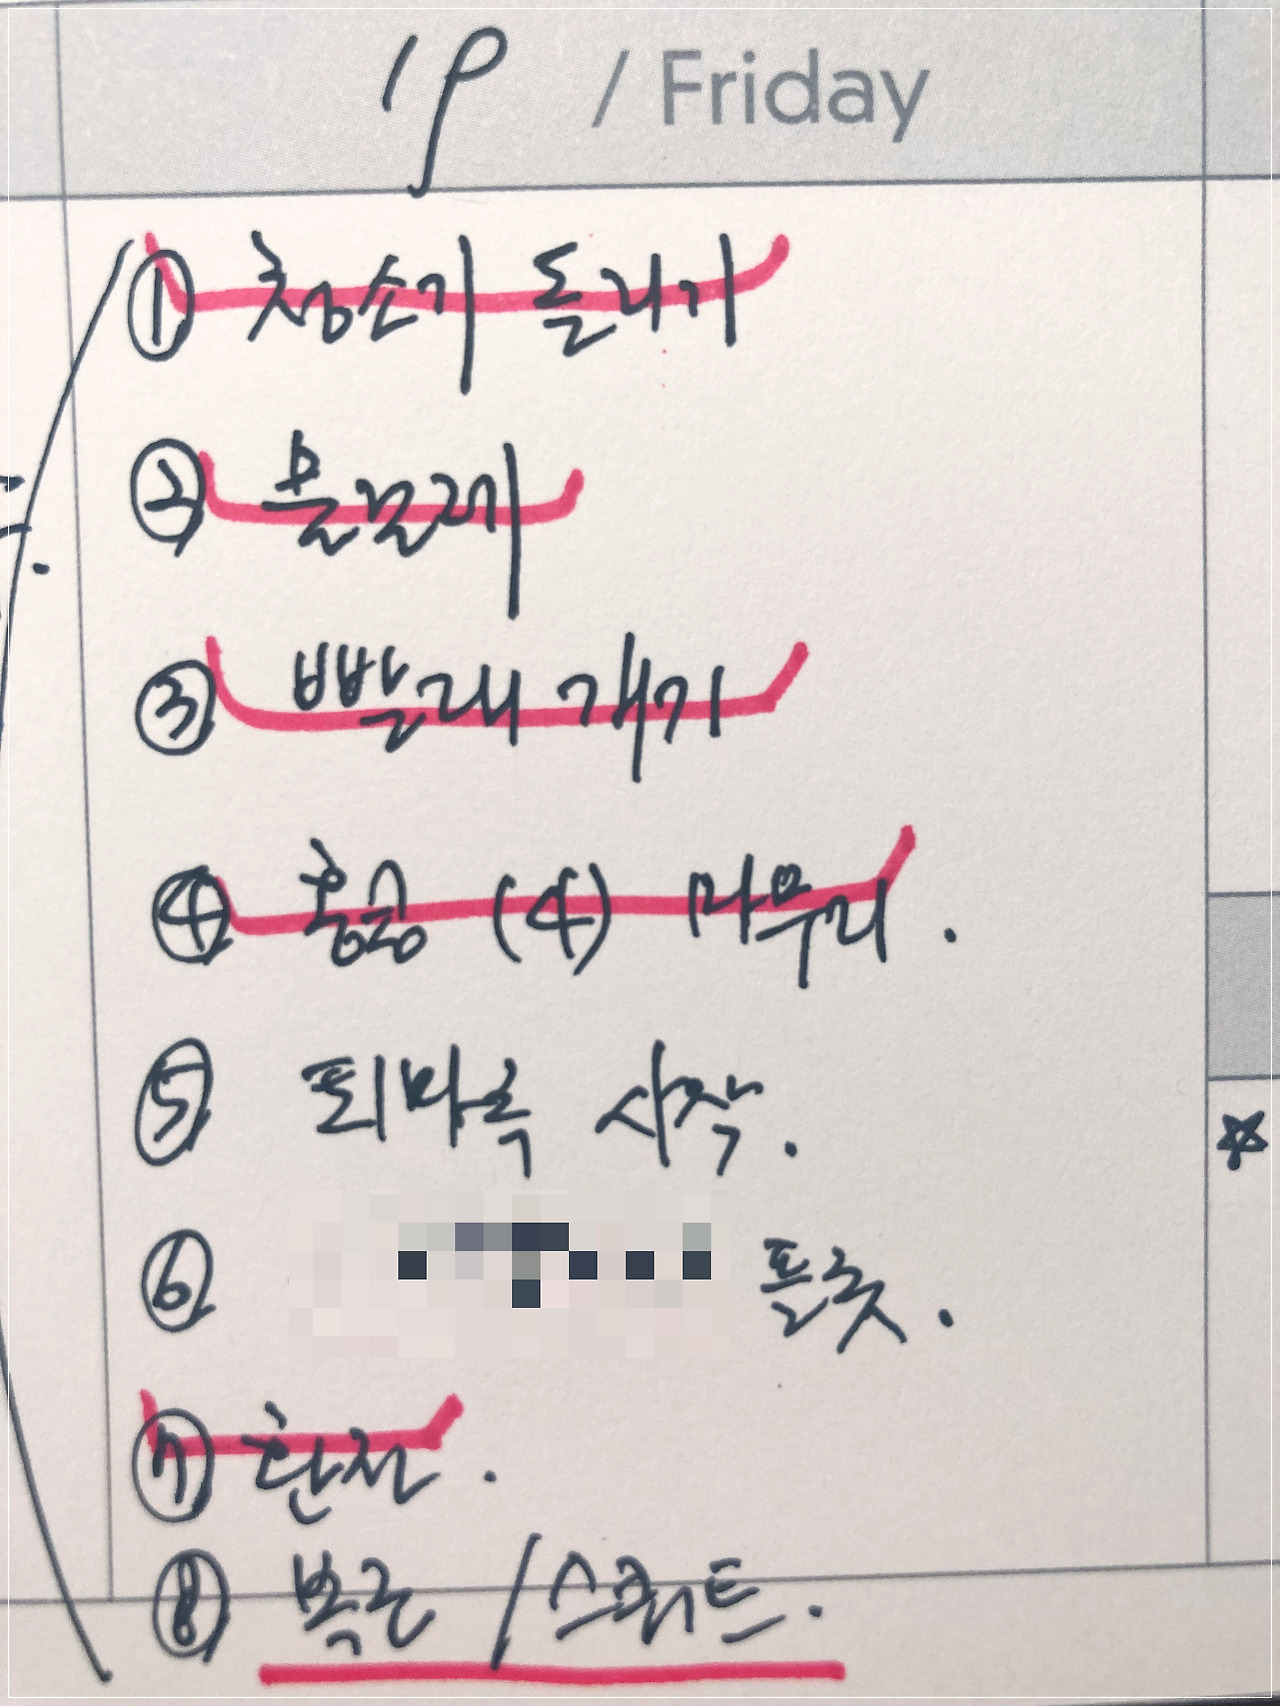 19 / Friday
① 청소기 돌리기
② 물걸레
③ 빨래 개기
④ 황금 (4) 마무리.
⑤ 퇴마록 시작.
⑥ 플롯.
⑦ 환전.
⑧ 복근 / 스쿼트.